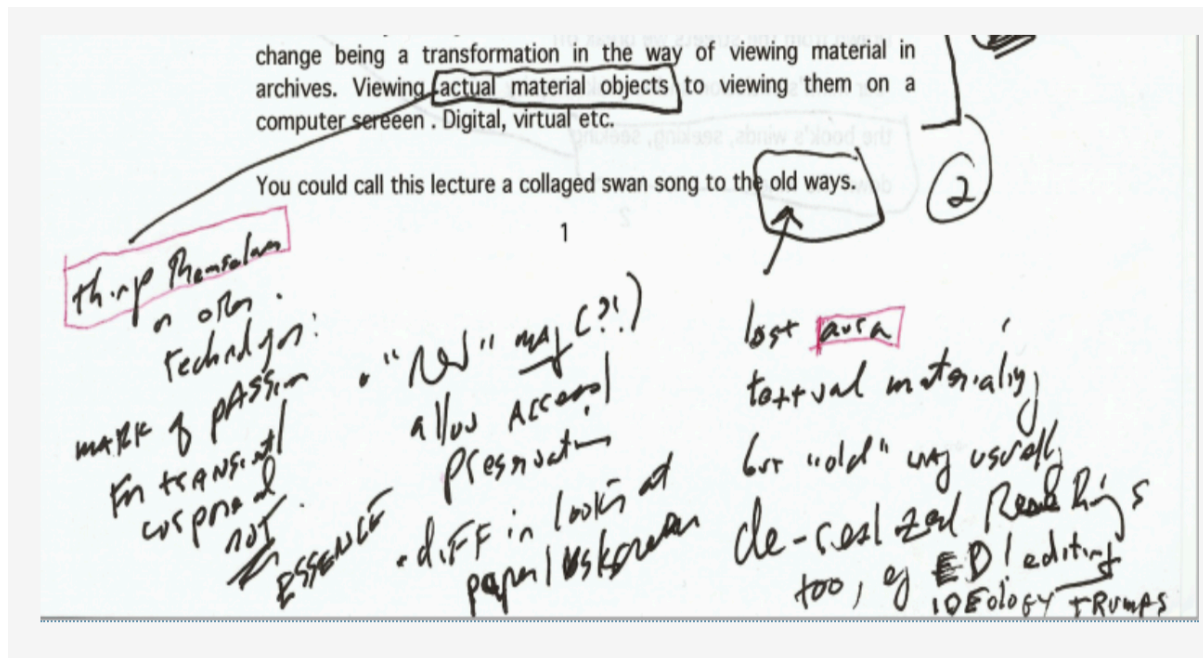 change being a transformation in the way of viewing material in
archives. Viewing actual material objects to viewing them on a
computer sereeen . Digital, virtual etc.
You could call this lecture a collaged swan song to the old ways.
2
1
themselves
or other
mark of passion
for transient/
corporal
not
ESSENCE
• "new" may (?!)
allow access/
preservation
• diff in looking at
paper/
lost aura
textual materiality
but "old" way usually
Readings
too, eg ED/editing
IDEology TRumps